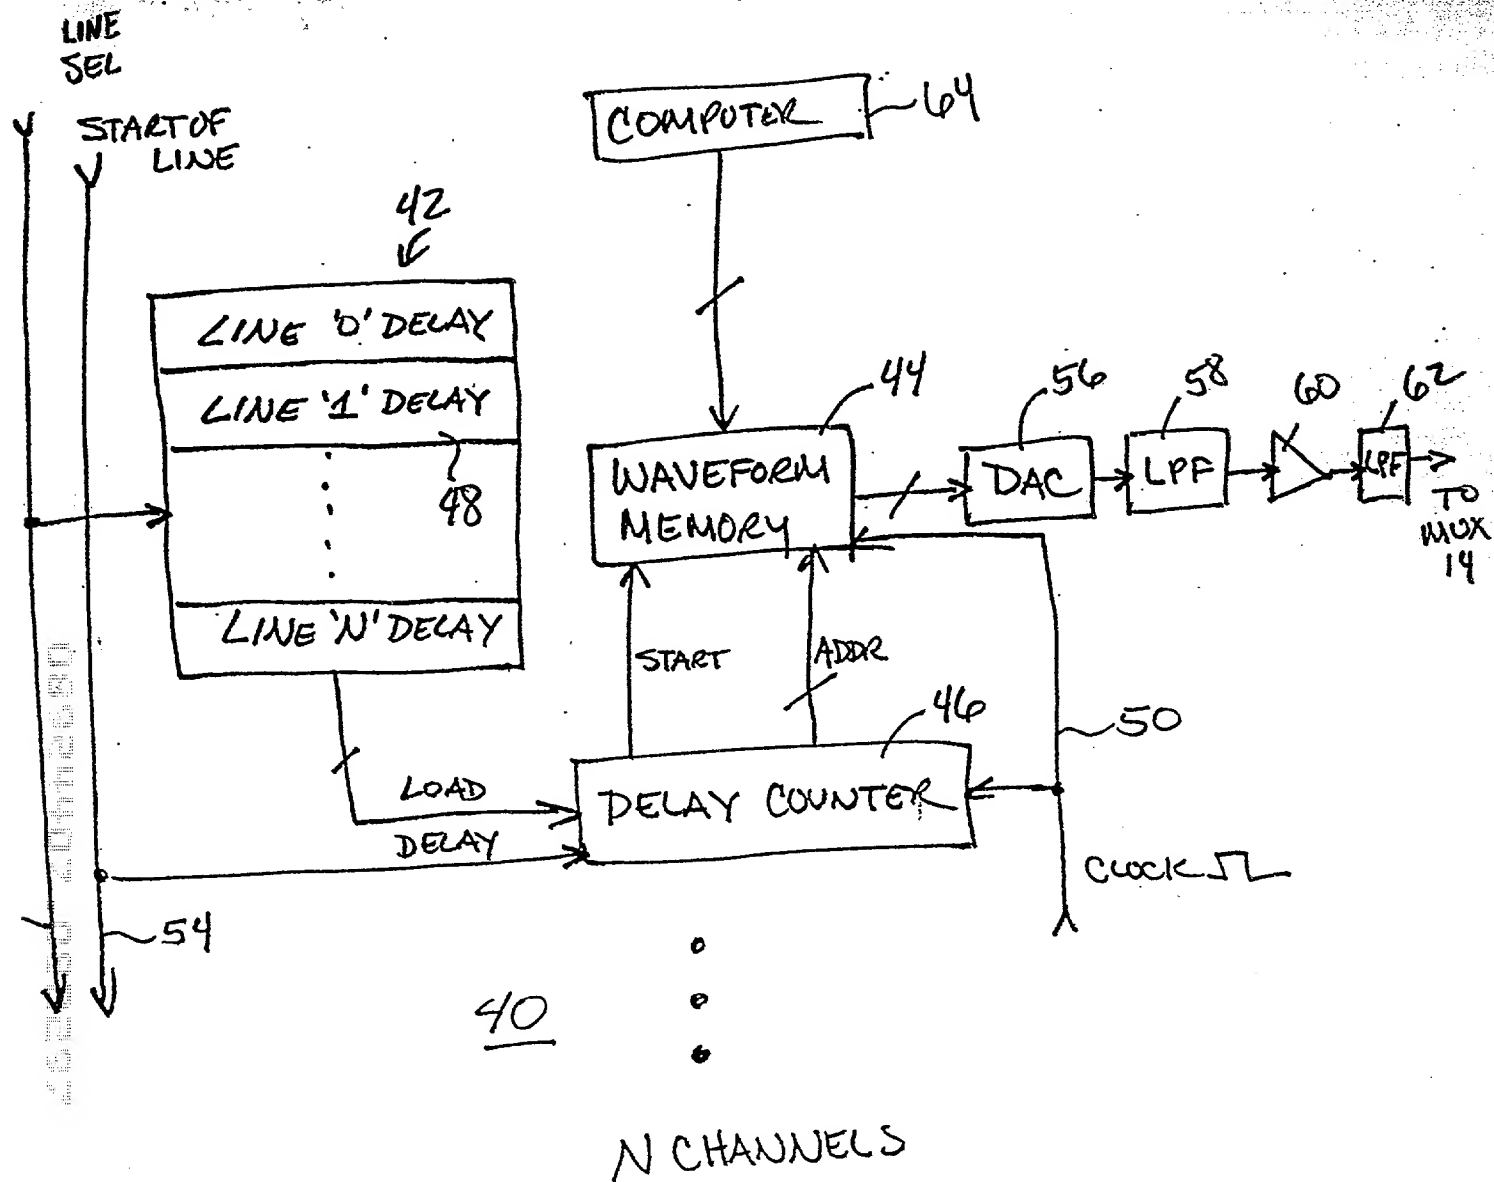 LINE
SEL
START OF
LINE
COMPUTER
64
42
LINE '0' DELAY
LINE '1' DELAY
48
LINE 'N' DELAY
WAVEFORM
MEMORY
44
DAC
56
LPF
58
60
LPF
62
TO
MUX
14
START
ADDR
46
50
LOAD
DELAY
DELAY COUNTER
CLOCK
54
40
N CHANNELS